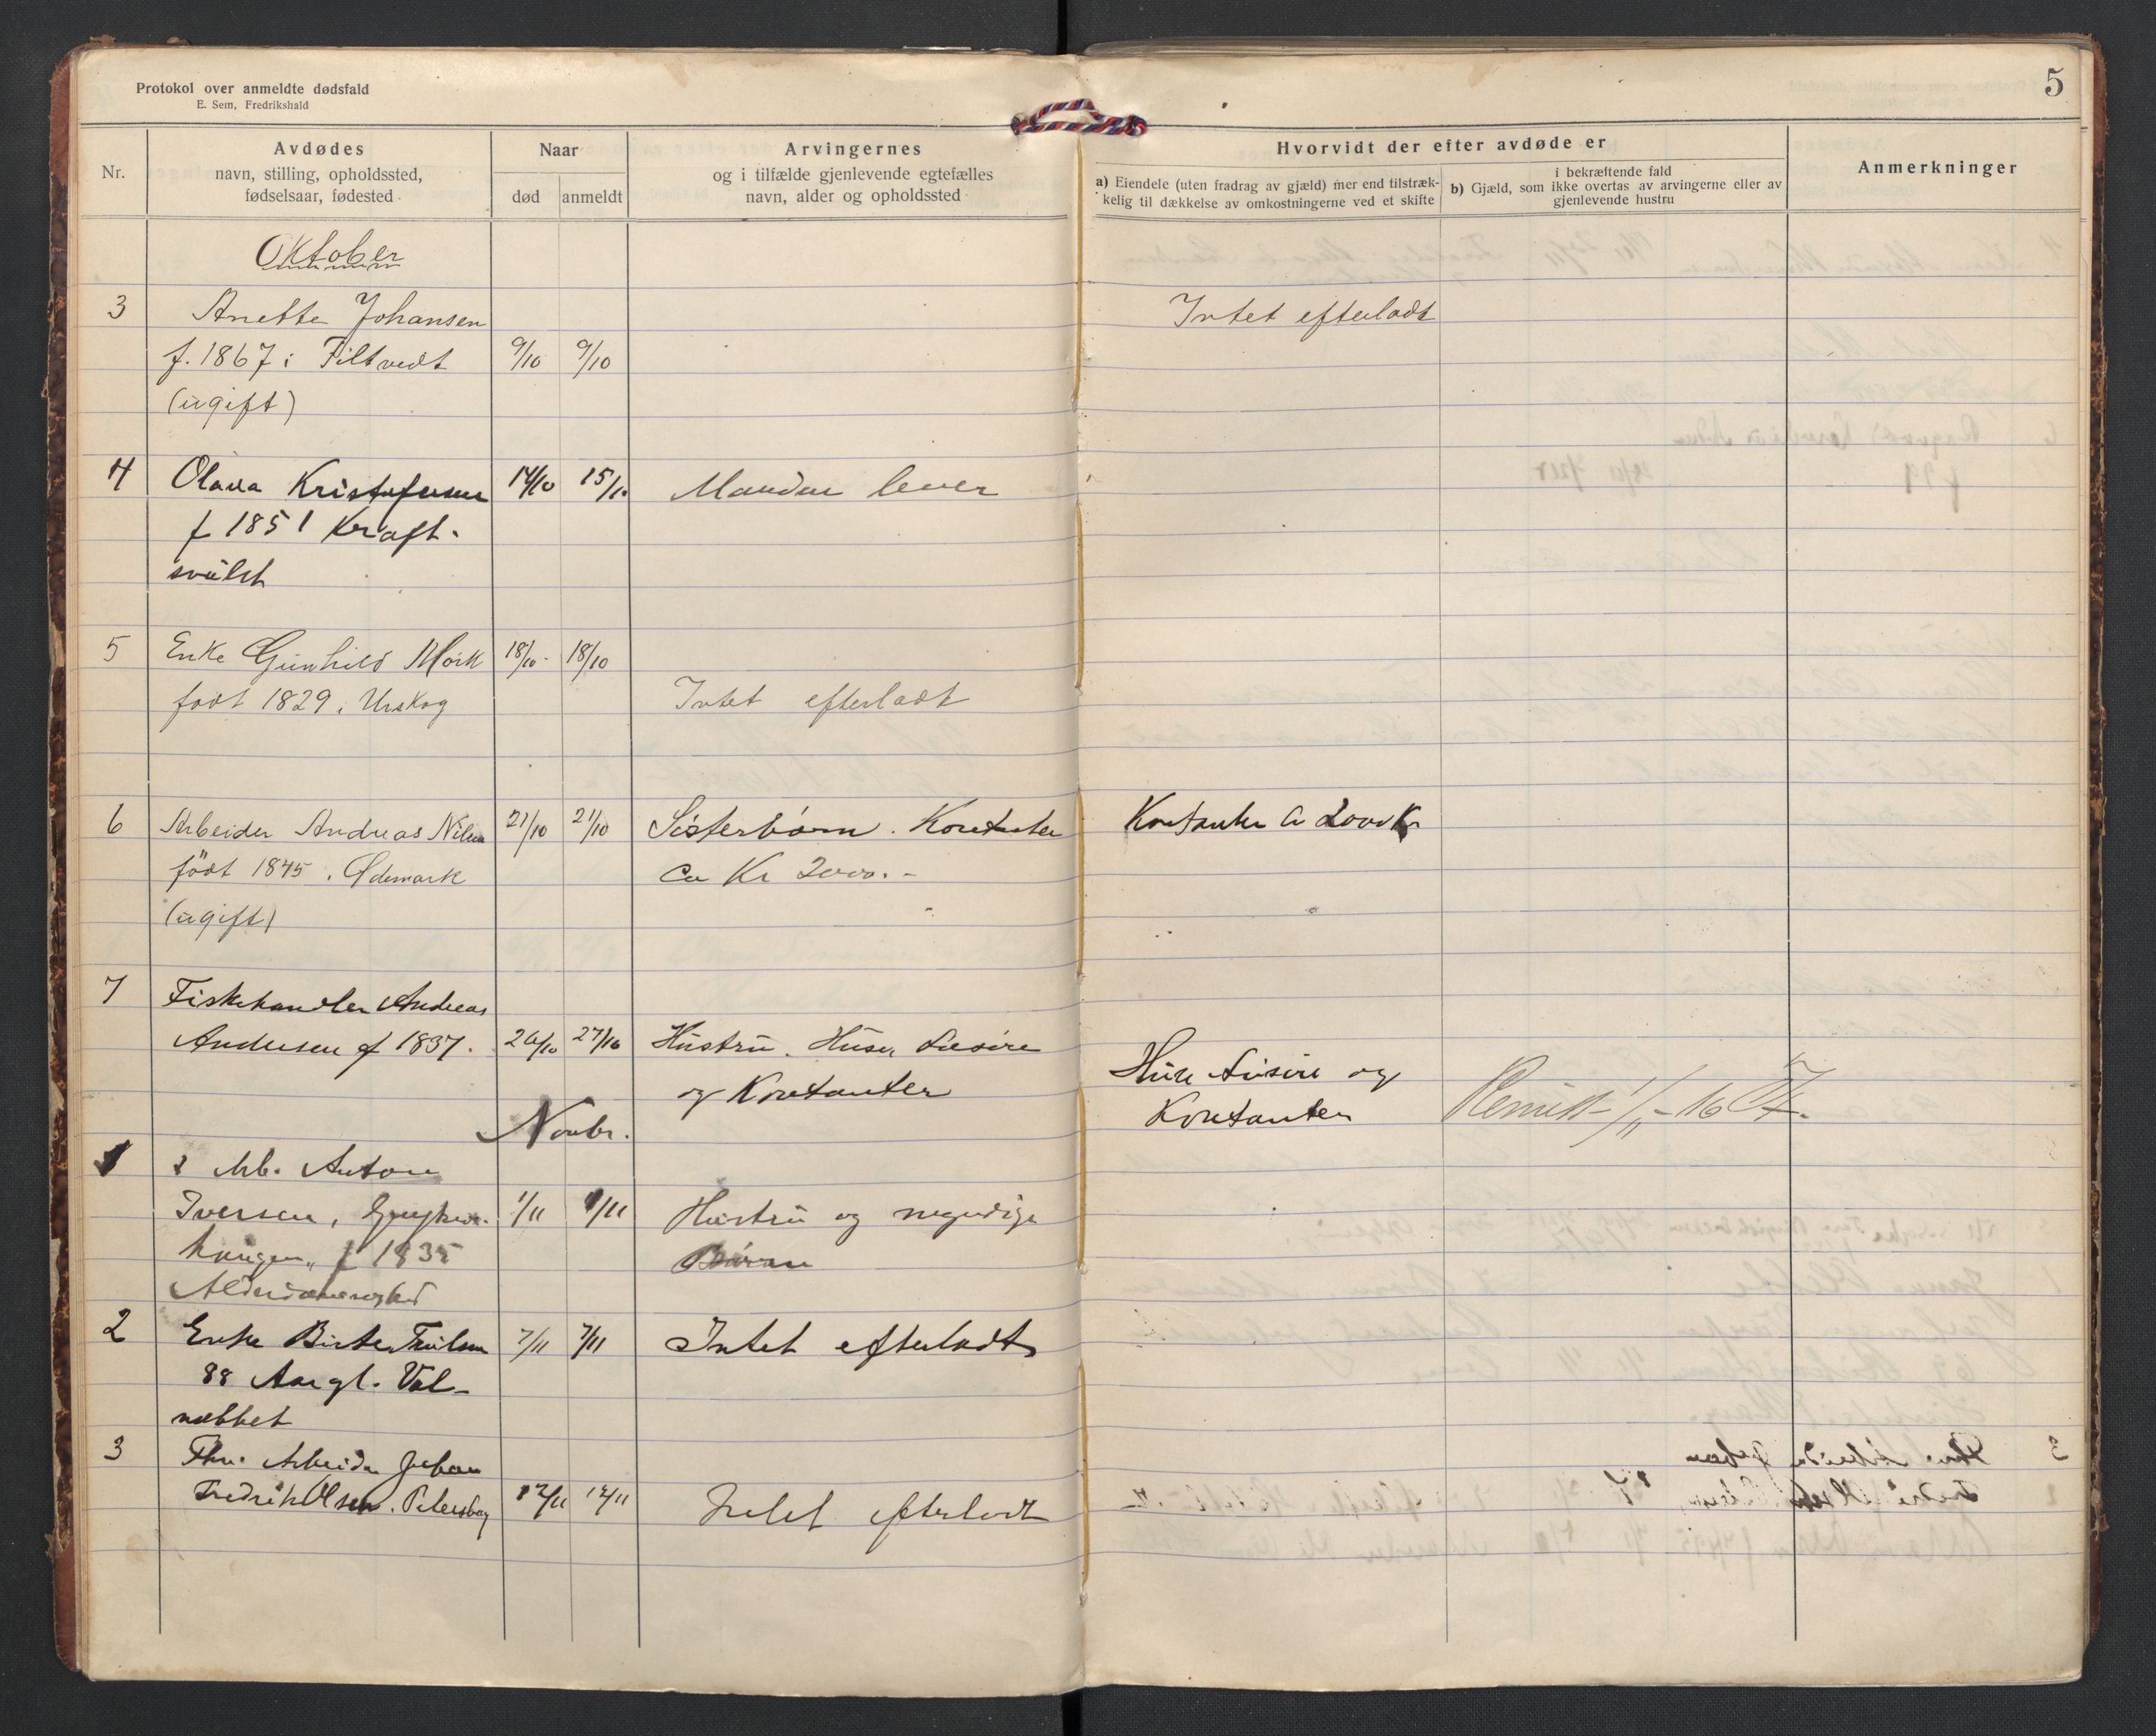 Protokol over anmeldte dødsfald
E. Sem, Fredrikshald
5
Nr.
Avdødes
navn, stilling, opholdssted,
fødselsaar, fødested
Naar
død
anmeldt
Arvingernes
og i tilfælde gjenlevende egtefælles
navn, alder og opholdssted
Hvorvidt der efter avdøde er
a) Eiendele (uten fradrag av gjæld) mer end tilstræk-
kelig til dækkelse av omkostningerne ved et skifte
i bekræftende fald
b) Gjæld, som ikke overtas av arvingerne eller av
gjenlevende hustru
Anmerkninger
Oktober
3 Anette Johansen
Intet efterladt
f. 1867 i Filtvedt 9/10 9/10
(ugift)
4 Olava Kristofersen 14/10 15/10 Manden lever
f 1851 Kraft-
svulst
5 Enke Gunhild Mörk 18/10 18/10
født 1829. Urskog Intet efterladt
6 Arbeider Andreas Nilsen 21/10 21/10 Sösterbørn. Kontanter Kontanter ca 2000 Kr
født 1845. Ødemark ca Kr 2000.-
(ugift)
7 Fiskehandler Andreas
Andersen f 1837. 26/10 27/10 Hustru. Huser Løsøre
og Kontanter
Huse Løsøre og
Kontanter
1/11-16
Novbr.
1 Arb. Anton
Iversen, 1/11 1/11 Hustru og myndige
haugen, f 1835 Børn
2 Enke 7/11 7/11 Intet efterladt
88 Aar gl.
3 Fhv. Arbeider Johan
Fredrik Olsen. Petersborg 12/11 12/11 Intet efterladt